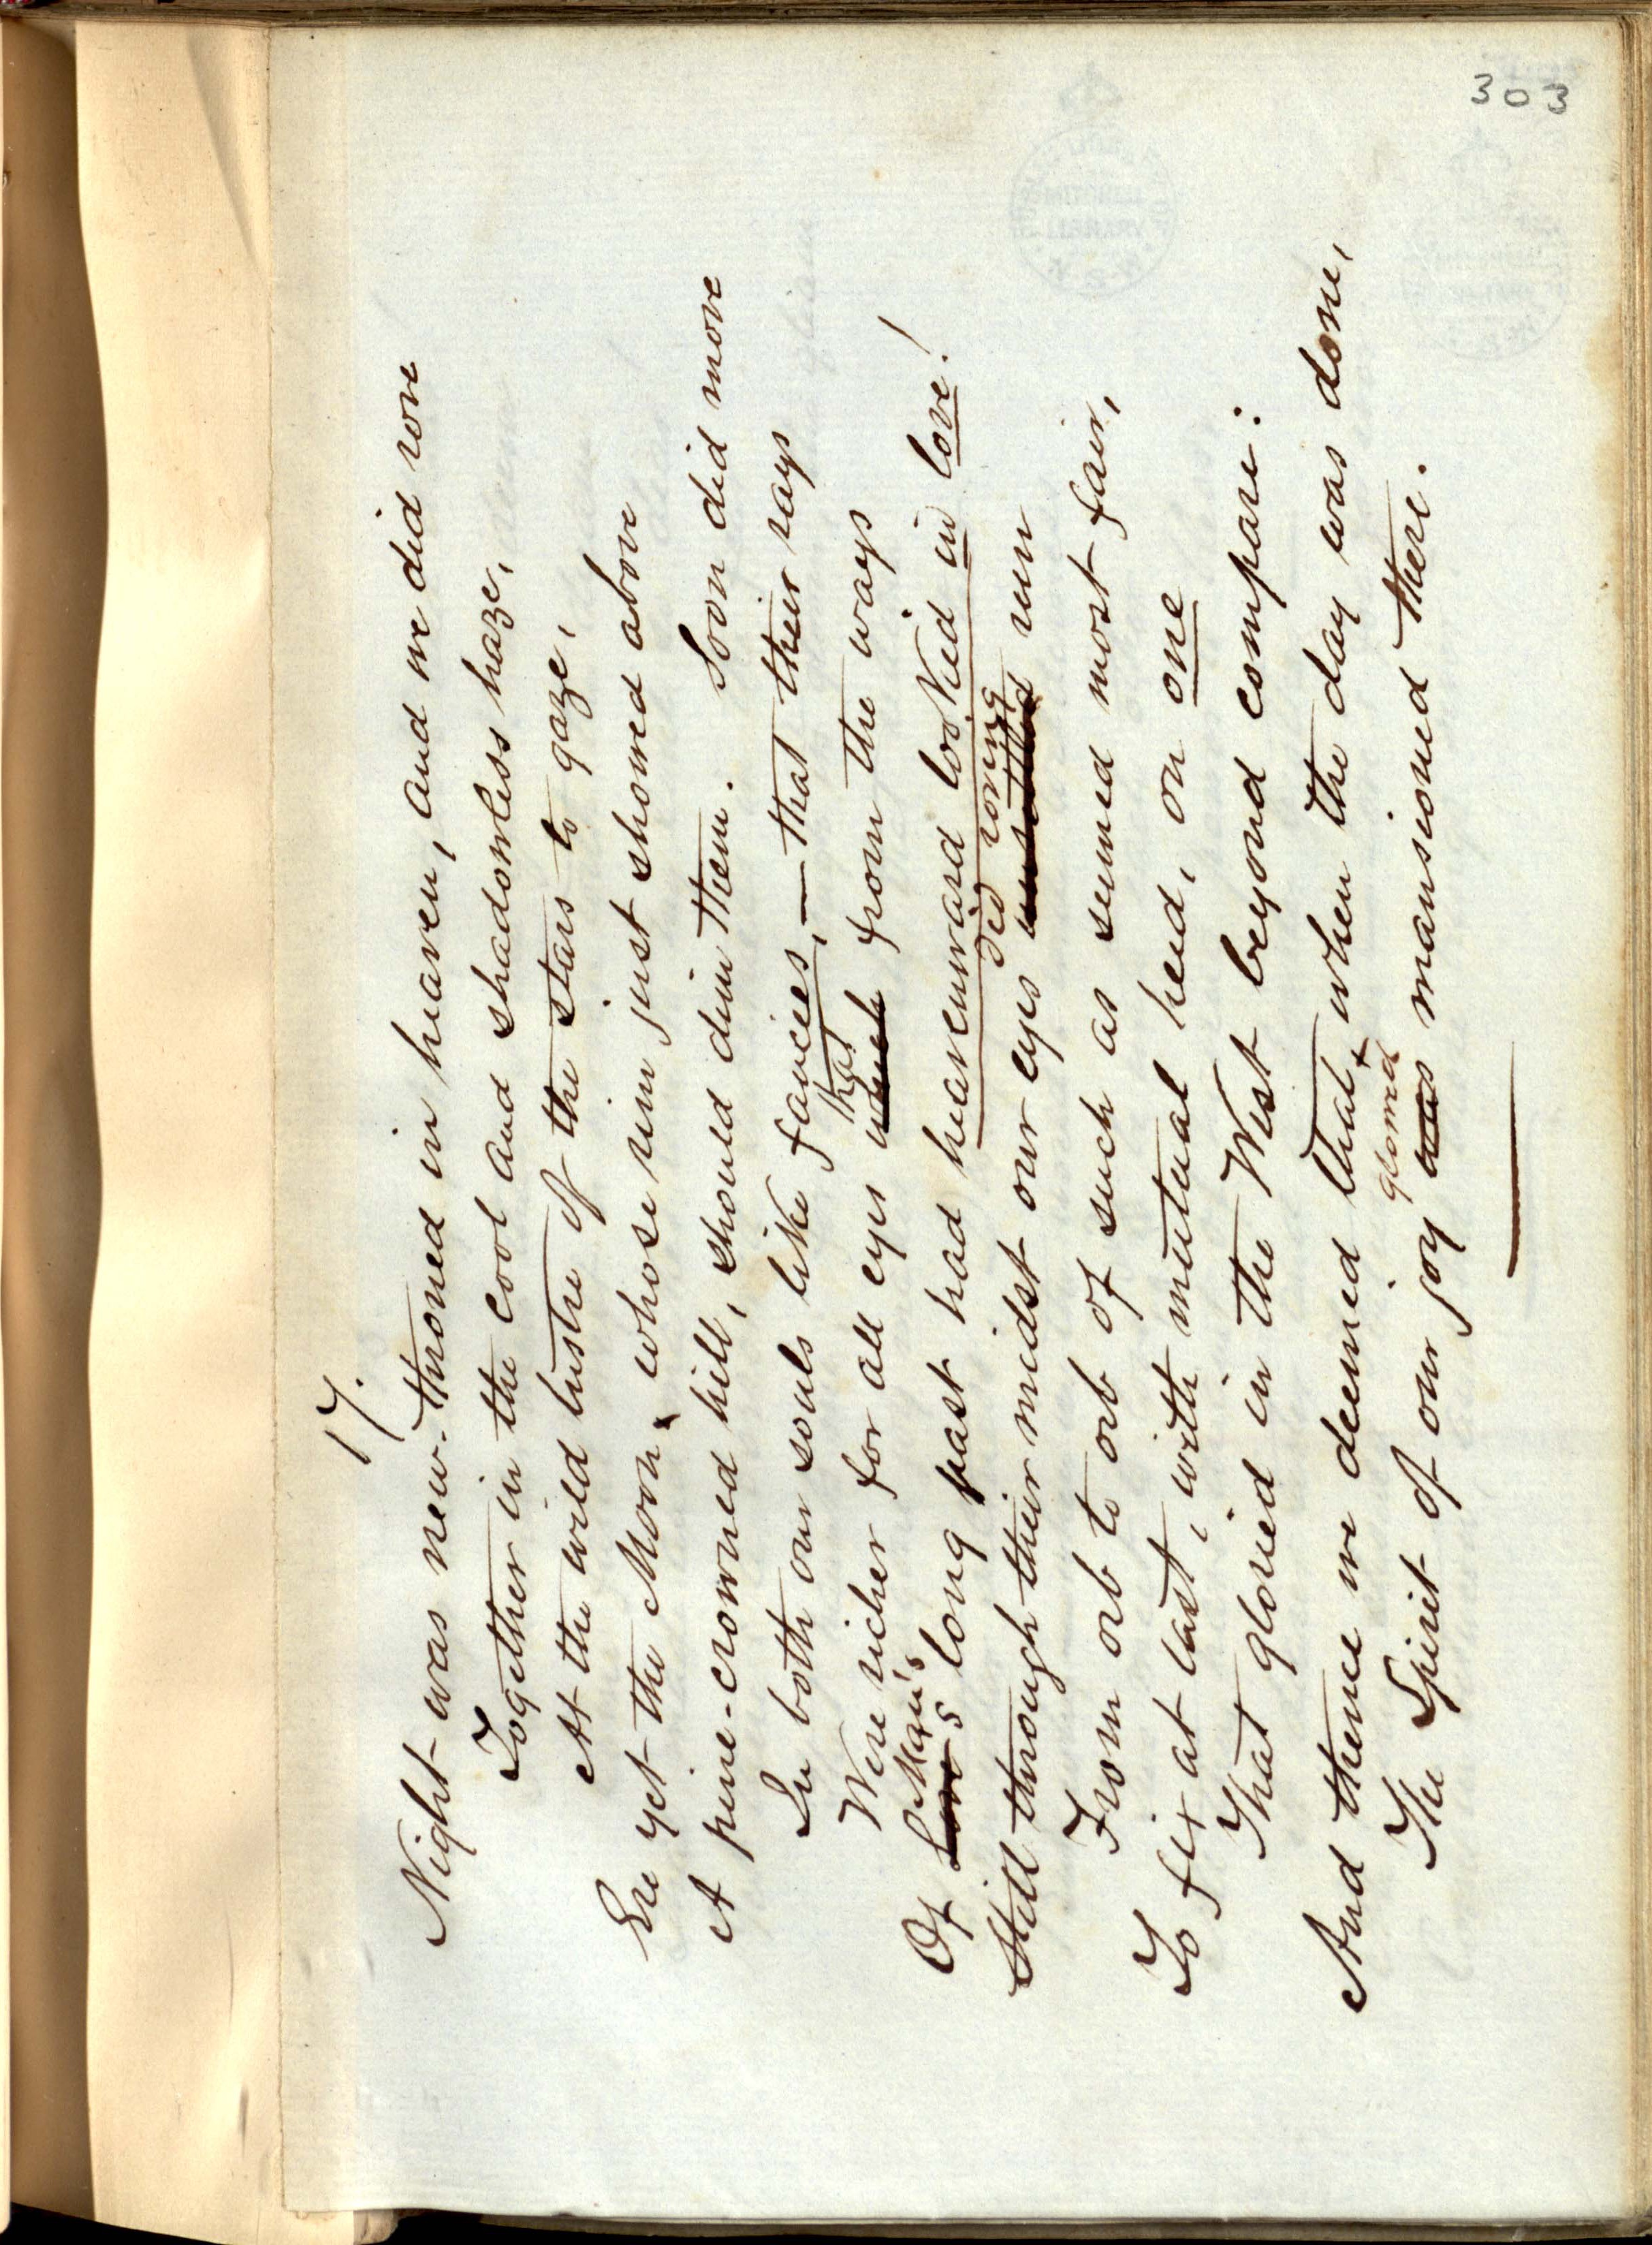 303
17.
Night was new-throned in heaven, and we did rove
Together in the cool and shadowless haze,
At the wild lustre of the stars to gaze,
Ere yet the Moon, whose rim just showed above
A pine-crowned hill, should dim them. Soon did move
In both our souls like fancies,—that their rays
Were richer for all eyes which that from the ways
Of Love's Man's long past had heavenward looked in love!
Still through their midst our eyes unsettled did roving run
From orb to orb of such as seemed most fair,
To fix at last, with mutual heed, on one
That gloried in the West beyond compare:
And thence we deemed that, when the day was done,
The Spirit of our joy was glowed mansioned there.
MITCHELL
LIBRARY
N.S.W.